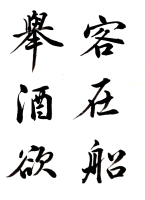 客在船
舉酒欲